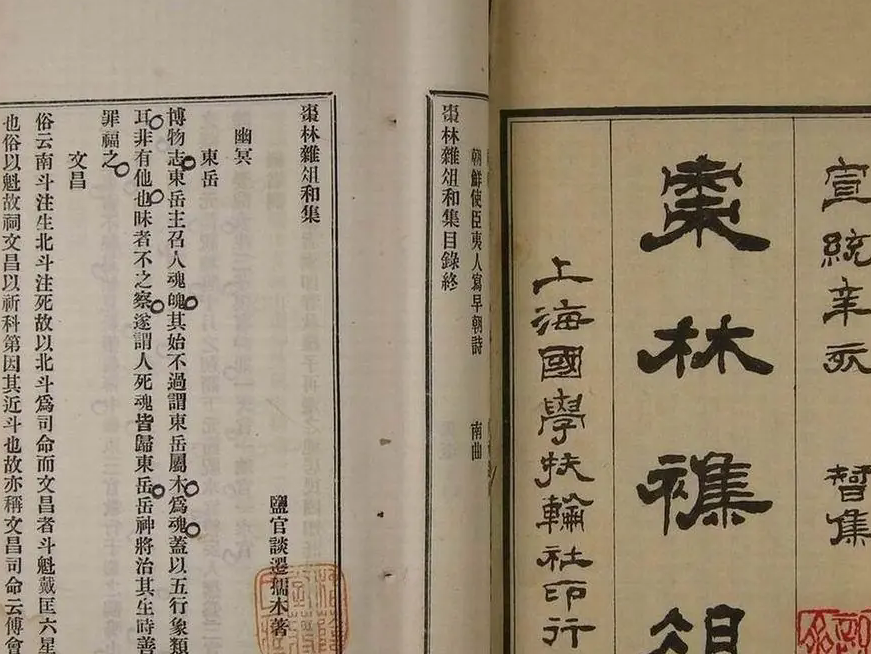 宣統辛亥　智集
棗林襍俎
上海國學扶輪社印行
朝鮮使臣夷人寫早朝詩　南曲
棗林雜俎和集目錄終
棗林雜俎和集
鹽官談遷孺木著
幽冥
東岳
博物志東岳主召人魂魄其始不過謂東岳屬木爲魂蓋以五行象類
耳非有他也昧者不之察遂謂人死魂皆歸東岳岳神將治其生時善
罪福之
文昌
俗云南斗注生北斗注死故以北斗爲司命而文昌者斗魁戴匡六星
也俗以魁故祠文昌以祈科第因其近斗也故亦稱文昌司命云傅會